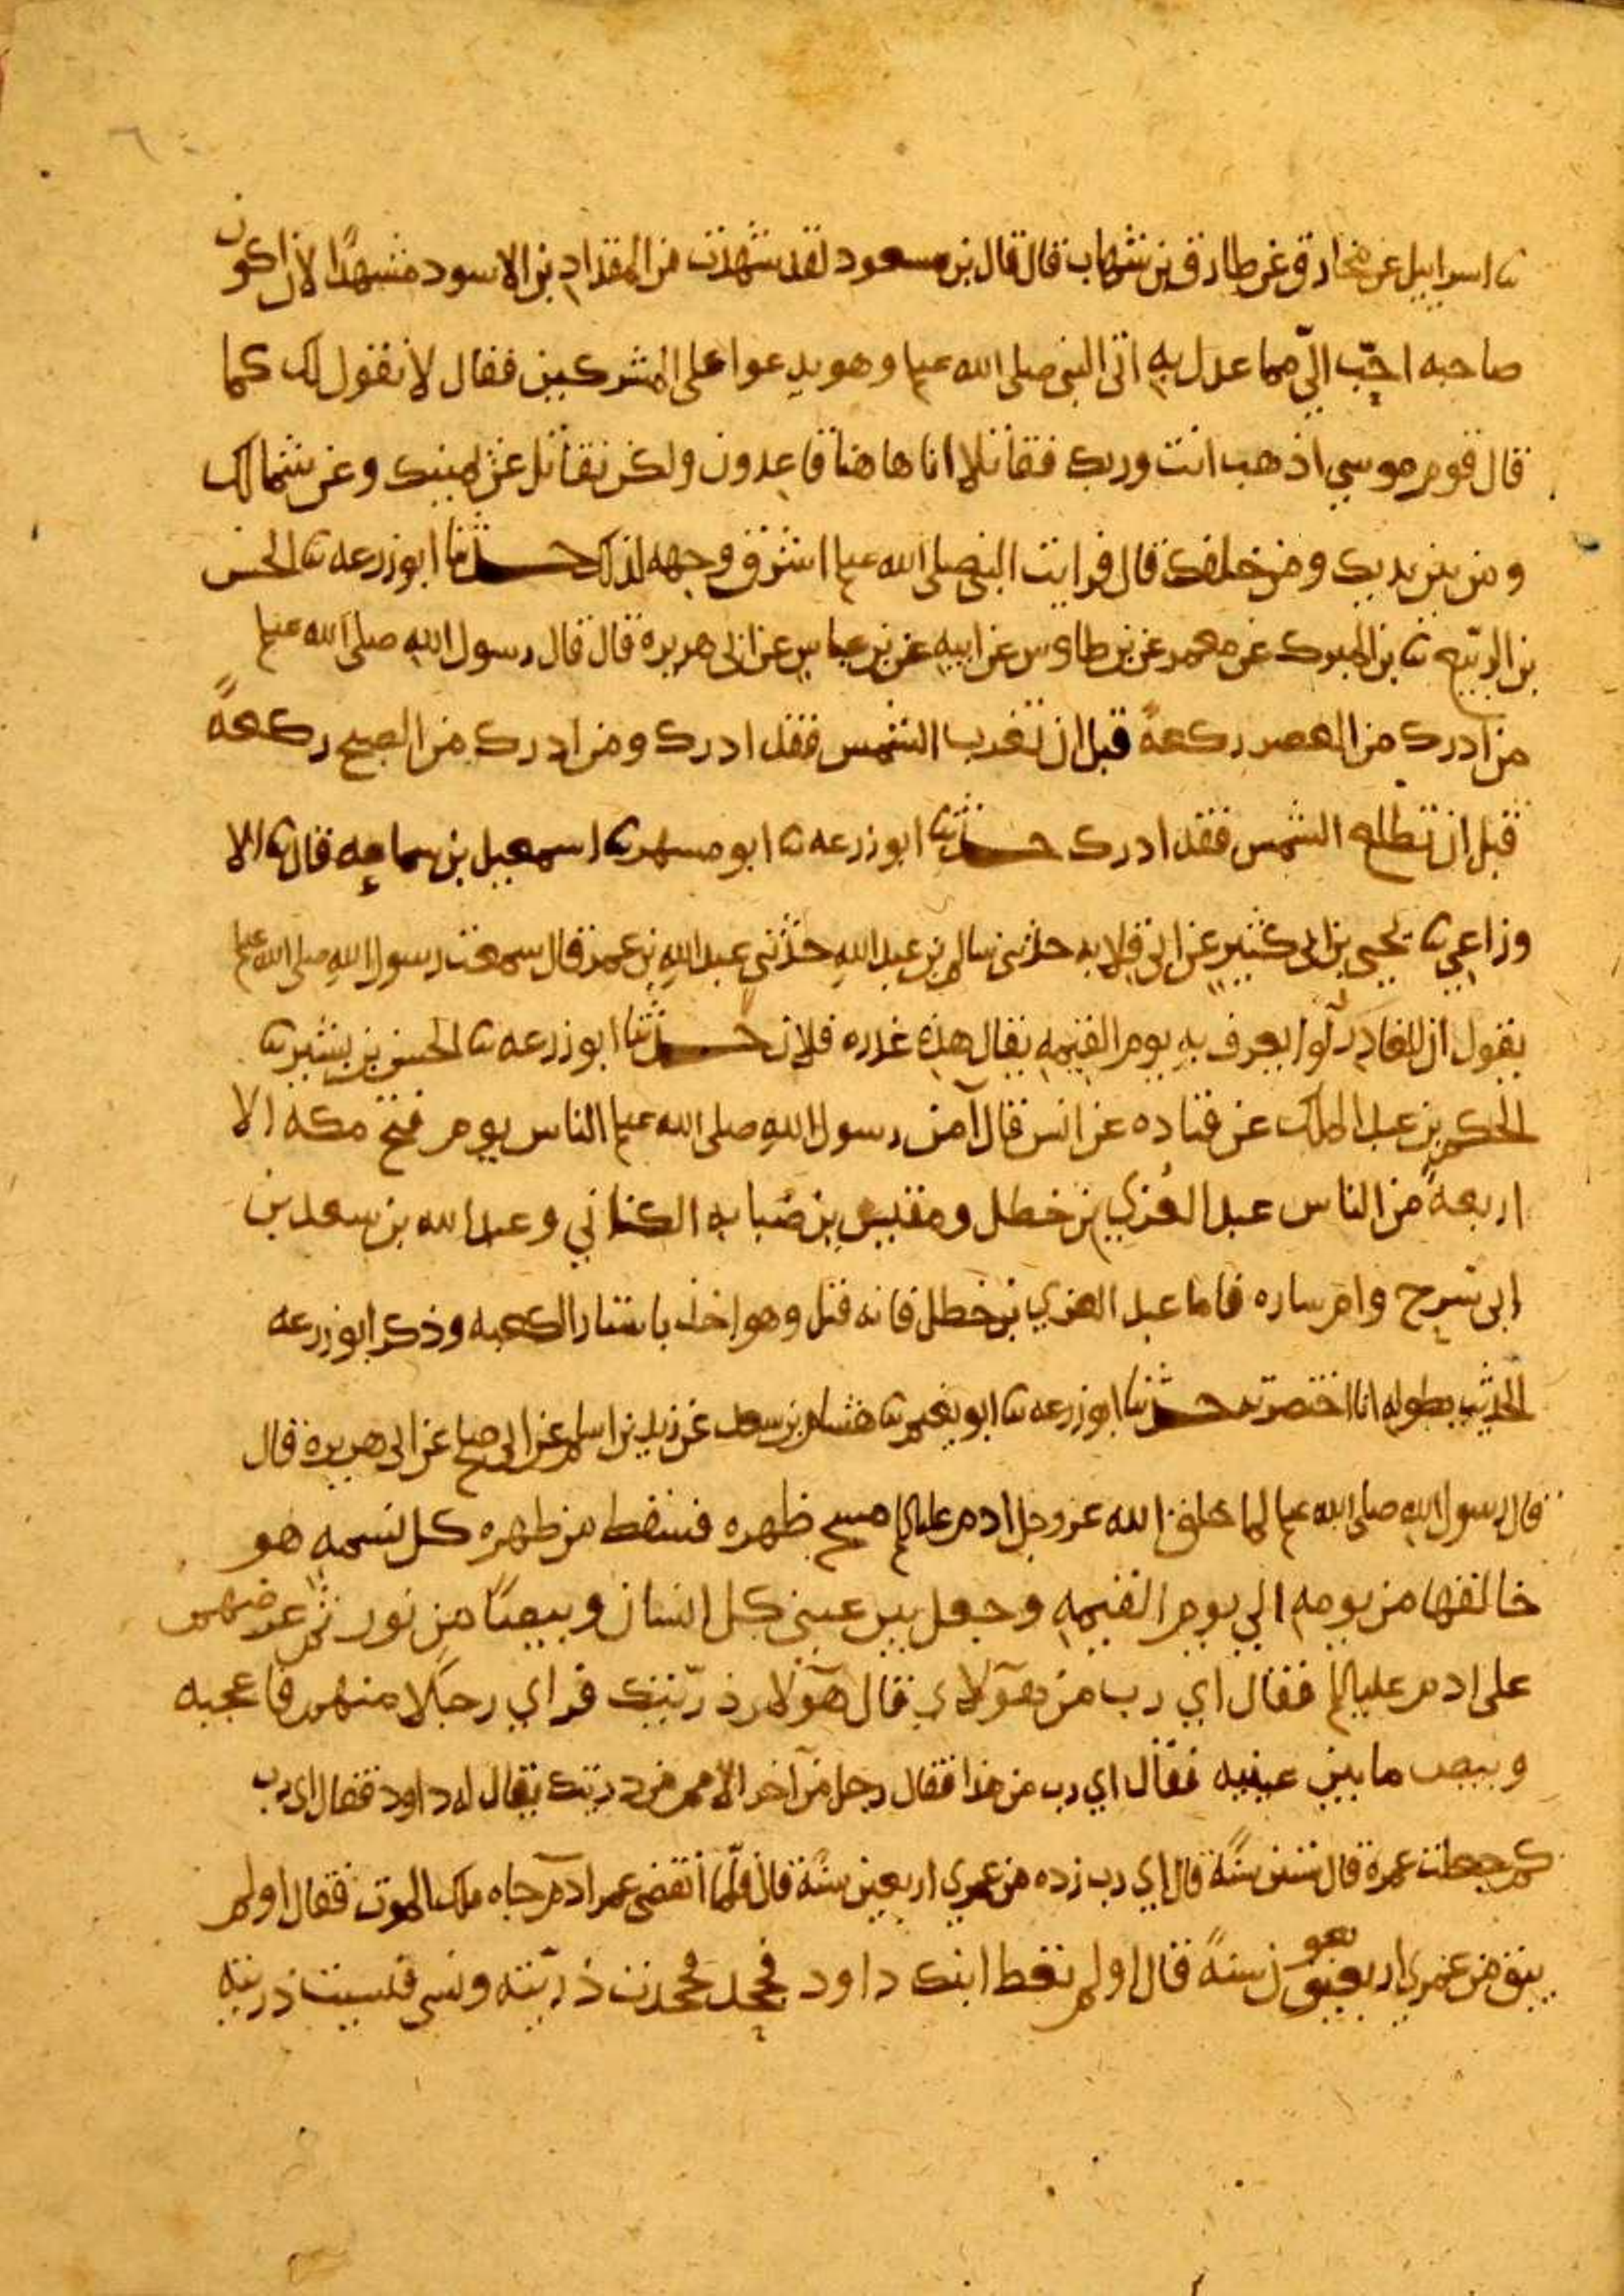 ٦
ثنا اسراييل عن مخارق عن طارق بن شهاب قال قال بن مسعود لقد شهدت من المقداد بن الاسود مشهدًا لان اكون
صاحبه احبّ اليّ مما عدل به اتى النبي صلى الله عليه وهو يدعوا على المشركين فقال لا نقول لك كما
قال قوم موسى اذهب انت وربك فقاتلا انا هاهنا قاعدون ولكن نقاتل عن يمينك وعن شمالك
ومن بين يديك ومن خلفك قال فرايت النبي صلى الله عليه اشرق وجهه لذلك حدثنا ابو زرعه ثنا الحسن
بن الربيع ثنا بن المبرك عن معمر عن بن طاوس عن ابيه عن بن عباس عن ابى هريره قال قال رسول الله صلى الله عليه
من ادرك من العصر ركعةً قبل ان تغرب الشمس فقد ادرك ومن ادرك من الصبح ركعةً
قبل ان تطلع الشمس فقد ادرك حدثنا ابو زرعه ثنا ابو مسهر ثنا اسمعيل بن سماعه قال ثنا الا
وزاعي ثنا يحيى بن ابى كثير عن ابى قلابه حدثنى سالم بن عبد الله حدثنى عبد الله بن عمر قال سمعت رسول الله صلى الله عليه
يقول ان للغادر لوا يعرف به يوم القيمه يقال هذه غدره فلان حدثنا ابو زرعه ثنا الحسن بن بشر ثنا
الحكم بن عبد الملك عن قتاده عن انس قال آمن رسول الله صلى الله عليه الناس يوم فتح مكه الا
اربعةً من الناس عبد العزي بن خطل ومقيس بن ضبابه الكناني وعبد الله بن سعد بن
ابى سرح وام ساره فاما عبد العزي بن خطل فانه قتل وهو اخذ باستار الكعبه وذكر ابو زرعه
الحديث بطوله انا اختصرته حدثنا ابو زرعه ثنا ابو نعيم ثنا هشام بن سعد عن زيد بن اسلم عن ابى صلح عن ابى هريره قال
قال رسول الله صلى الله عليه لما خلق الله عز وجل ادم عليه السلم مسح ظهره فسقط من ظهره كل نسمه هو
خالقها من يومه الي يوم القيمه وجعل بين عيني كل انسان وبيصًا من نور ثم عرضهم
على ادم عليه السلم فقال اي رب من هؤلاي قال هؤلا ذريتك فراي رجلا منهم فاعجبه
وبيص ما بين عينيه فقال اي رب من هذا فقال رجل من آخر الامم من ذريتك يقال له داود فقال اي رب
كم جعلت عمره قال ستين سنةً قال اي رب زده من عمري اربعين سنة قال فلما انقضى عمر ادم جاه ملك الموت فقال اولم
يبق من عمري اربعين سنةً قال اولم تعط ابنك داود فجحد فجحدت ذريته ونسى فنسيت ذريته